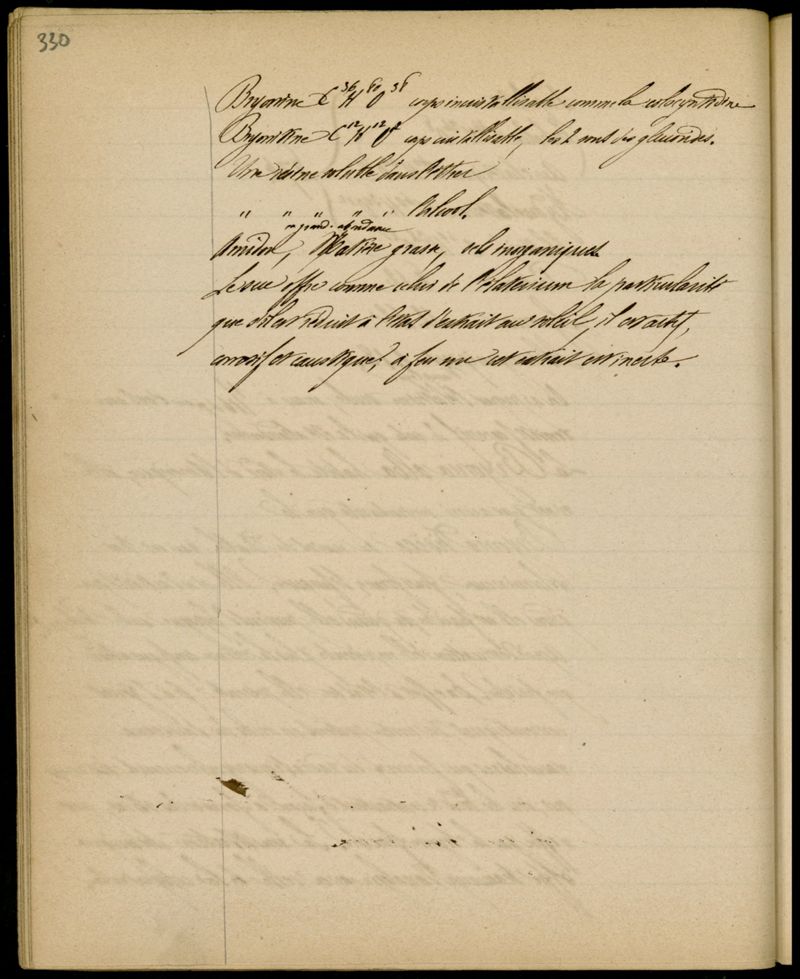 330
Bryonine C³⁶ H⁶⁰ O³⁸ corps incristallisable comme la colocynthine
Bryonitine C¹² H¹² O² corps cristallisable, les 2 sont des glucosides.
Une résine soluble dans l'éther
" " " " " l'alcool.
en grand. abondance
Amidon, Matière grasse, sels inorganiques
Le suc offre comme celui de l'élaterium la particularité
que s'il est réduit à l'état d'extrait au soleil, il est actif,
corrosif et caustique, à feu nu cet extrait est inerte.